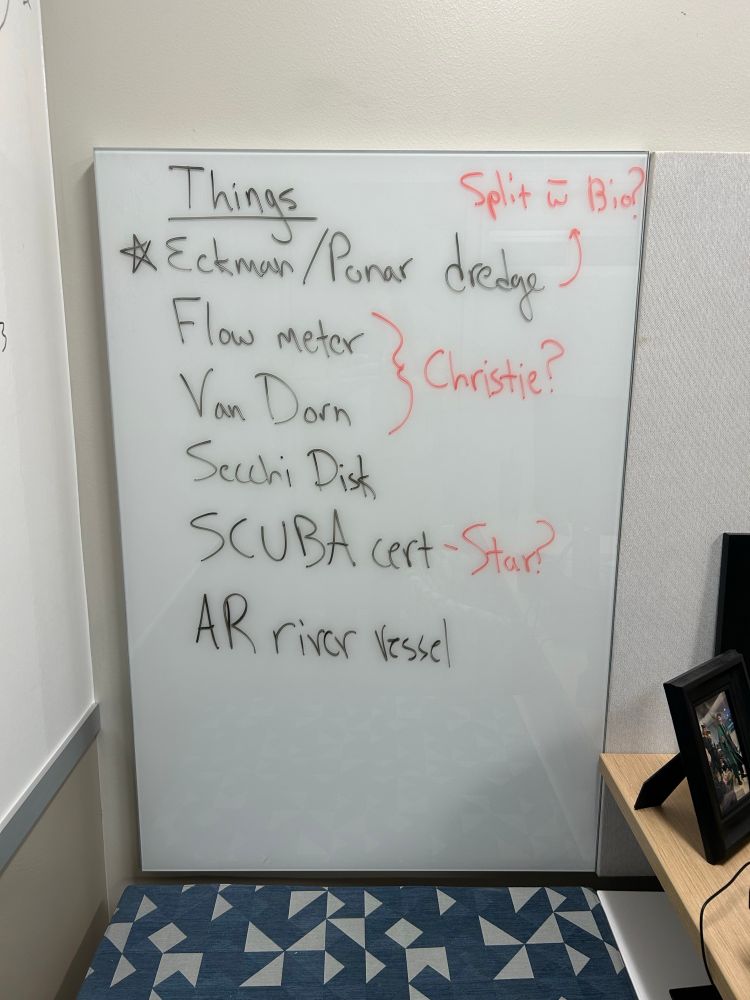 Things
Split w̄ Bio?
☆ Eckman/Ponar dredge
Flow meter
Van Dorn
Christie?
Secchi Disk
SCUBA cert - Star?
AR river vessel
3